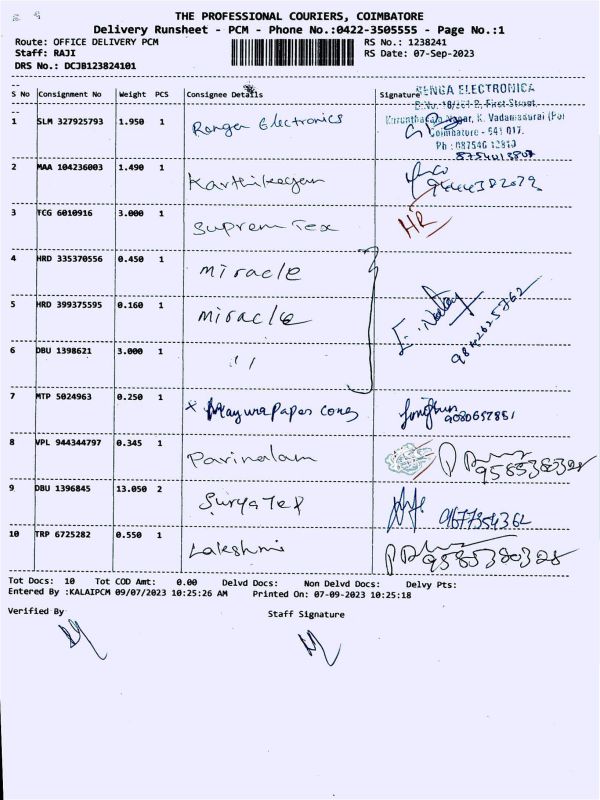 THE PROFESSIONAL COURIERS, COIMBATORE
Delivery Runsheet - PCM - Phone No.:0422-3505555 - Page No.:1
Route: OFFICE DELIVERY PCM
RS No.: 1238241
Staff: RAJI
RS Date: 07-Sep-2023
DRS No.: DCJB123824101
S No Consignment No Weight PCS Consignee Details Signature
1 SLM 327925793 1.950 1 Renga Electronics
RENGA ELECTRONICA
First Street,
Nagar, K. Vadamadurai (Po)
Coimbatore - 641 017.
2 MAA 104236003 1.490 1 Karthikeyan
3 TCG 6010916 3.000 1 Suprem Tex HR
4 HRD 335370556 0.450 1 miracle
5 HRD 399375595 0.160 1 miracle 9842625762
6 DBU 1398621 3.000 1 ''
7 MTP 5024963 0.250 1 x Mayura Paper cones 9080657851
8 VPL 944344797 0.345 1 Parimalam 9585380328
9 DBU 1396845 13.050 2 Surya Tex 9677354362
10 TRP 6725282 0.550 1 Lakshmi 9585380328
Tot Docs: 10 Tot COD Amt: 0.00 Delvd Docs: Non Delvd Docs: Delvy Pts:
Entered By :KALAIPCM 09/07/2023 10:25:26 AM Printed On: 07-09-2023 10:25:18
Verified By
Staff Signature